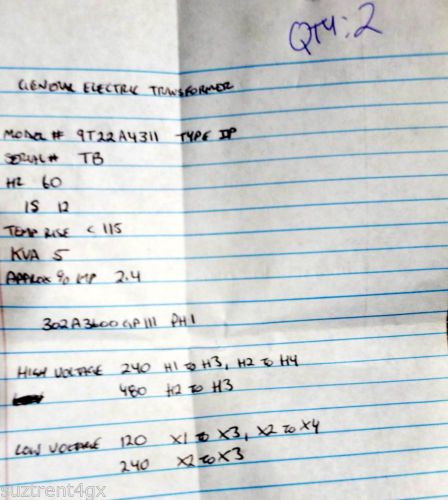 QTY: 2
GENERAL ELECTRIC TRANSFORMER
MODEL # 9T22A4311 TYPE IP
SERIAL# TB
HZ 60
IS 12
TEMP RISE < 115
KVA 5
APPROX % IMP 2.4
302A3600GP111 PH1
HIGH VOLTAGE 240 H1 TO H3, H2 TO H4
480 H2 TO H3
LOW VOLTAGE 120 X1 TO X3, X2 TO X4
240 X2 TO X3
Copyright@
suztrent4gx